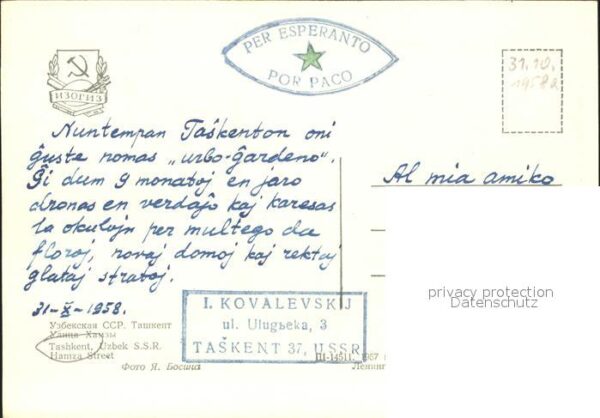 PER ESPERANTO
POR PACO
31.10.
1958
ИЗОГИЗ
Nuntempan Taŝkenton oni
ĝuste nomas „urbo-ĝardeno“.
Ĝi dum 9 monatoj en jaro
dronas en verdaĵo kaj karesas
la okulojn per multego da
floroj, novaj domoj kaj rektaj
glataj stratoj.
31-X-1958.
Al mia amiko
privacy protection
Datenschutz
I. KOVALEVSKIJ
ul. Ulugbeka, 3
TAŠKENT 37, USSR
Узбекская ССР. Ташкент
Улица Хамзы
Tashkent, Uzbek S.S.R.
Hamza Street
Фото Я. Босина
Ш-14511. 1957
Ленинг